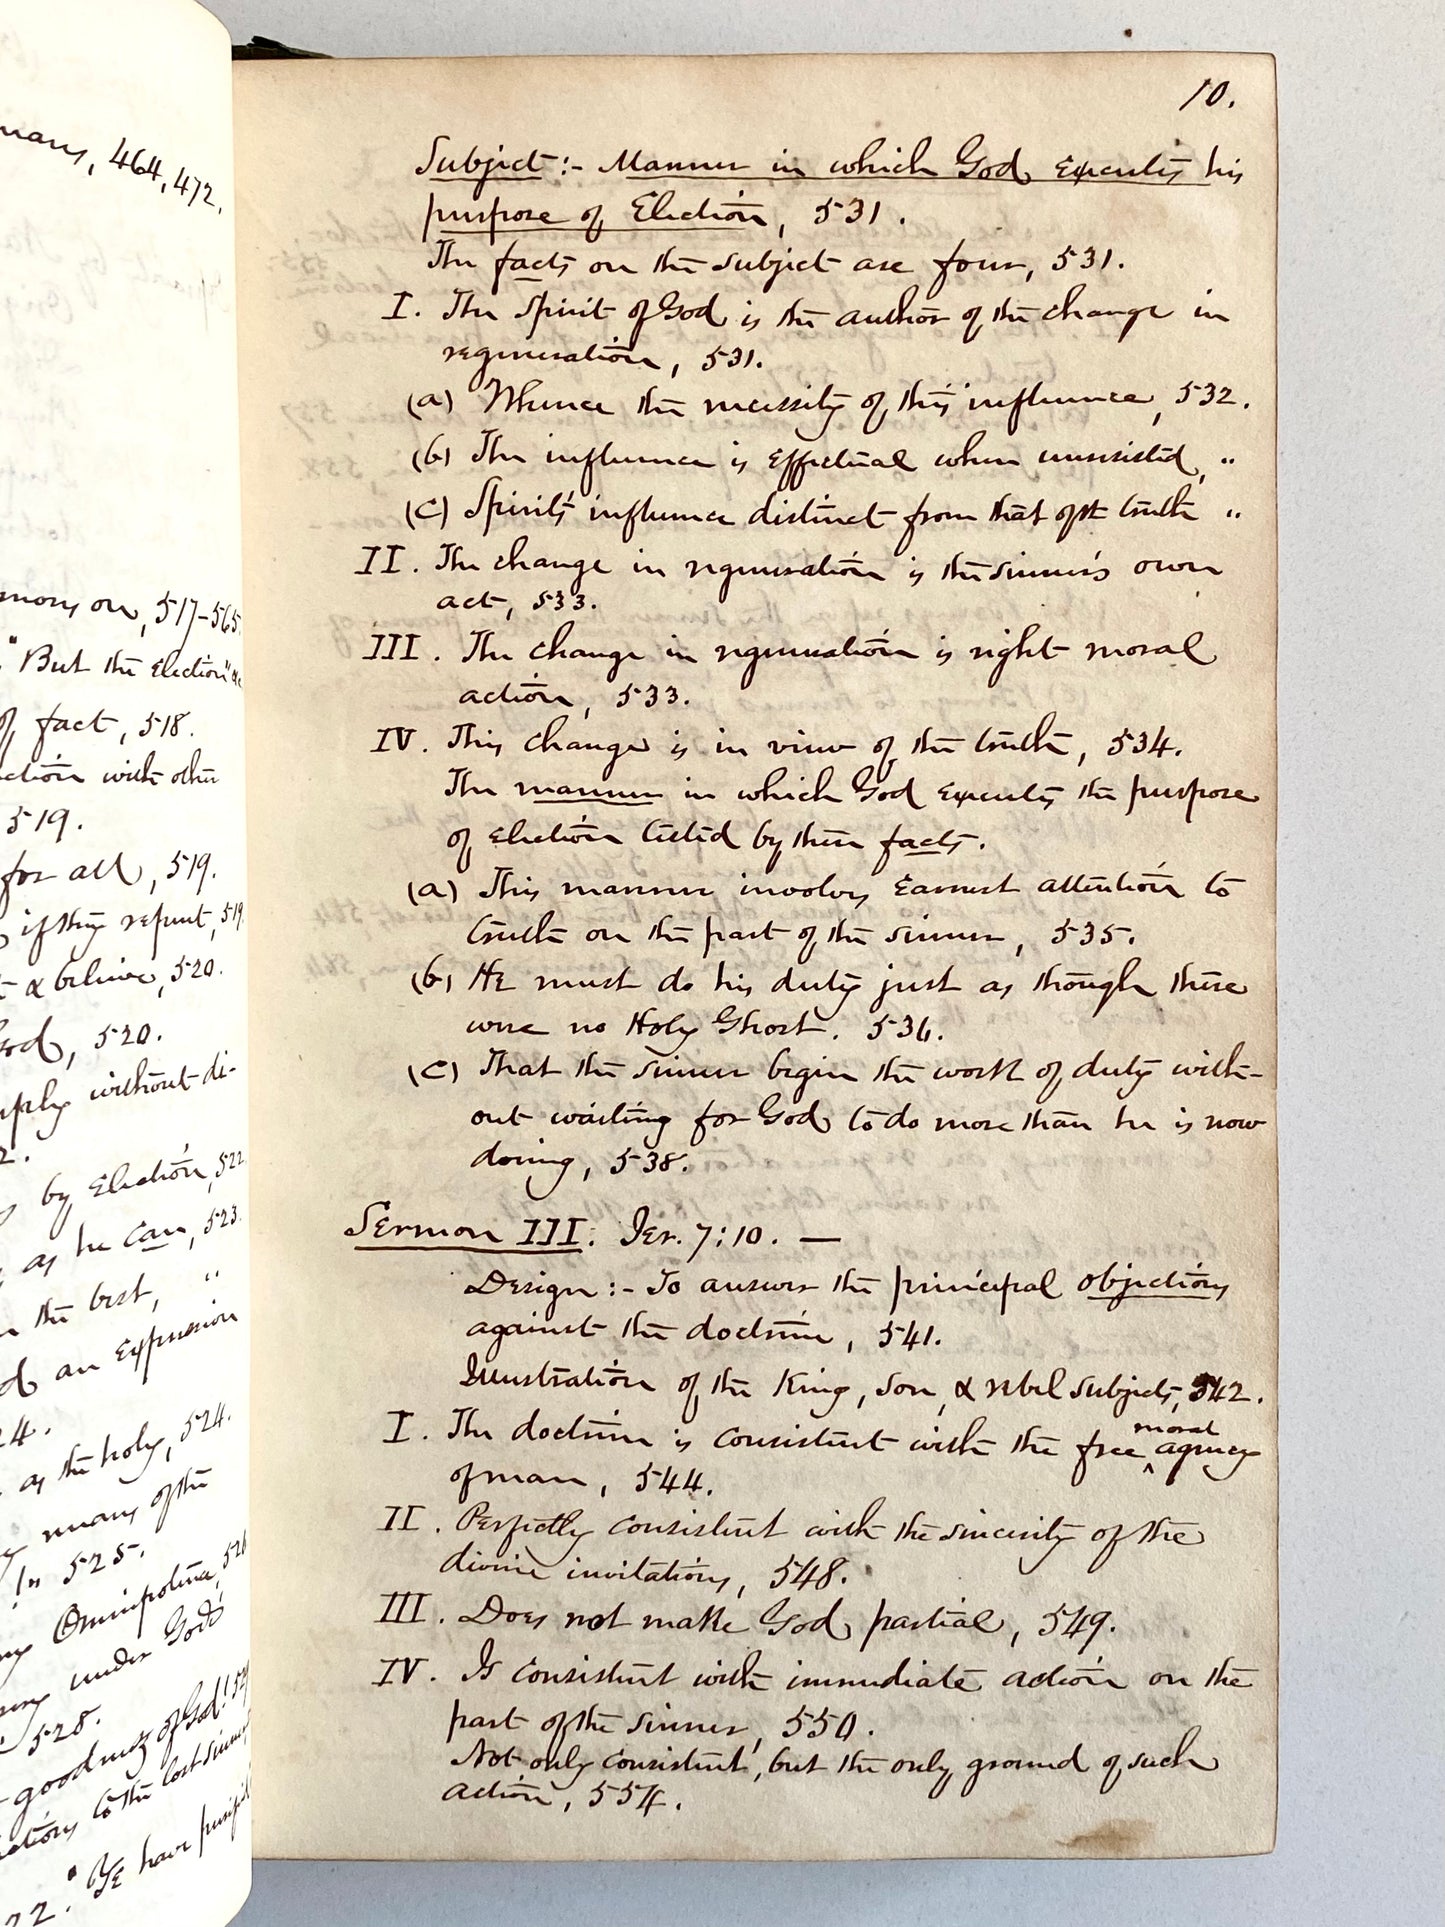 mans, 464, 472.
mons on, 517-565.
"But the Election" &c
of fact, 518.
ction with other
519.
for all, 519.
if they repent, 519
t & believe, 520.
God, 520.
mply without di-
2.
by Election, 522
as he can, 523.
n the best, "
d an Expression
24.
as the holy, 524.
means of the
525.
Omnipotence, 526
under God's
528.
goodness of God! 529
to the lost sinner
22. "Ye have
10.
Subject:- Manner in which God Executes his
purpose of Election, 531.
The facts on the subject are four, 531.
I. The Spirit of God is the author of the change in
regeneration, 531.
(a) Whence the necessity of this influence, 532.
(b) The influence is Effectual when unresisted, "
(c) Spirit's influence distinct from that of the truth "
II. The change in regeneration is the sinner's own
act, 533.
III. The change in regeneration is right moral
action, 533.
IV. This change is in view of the truth, 534.
The manner in which God Executes the purpose
of Election tested by these facts.
(a) This manner involves Earnest attention to
truth on the part of the sinner, 535.
(b) He must do his duty just as though there
were no Holy Ghost. 536.
(c) That the sinner begin the work of duty with-
out waiting for God to do more than he is now
doing, 538.
Sermon III. Jer. 7:10. —
Design:- To answer the principal objections
against the doctrine, 541.
Illustration of the King, son, & rebel subjects, 542.
I. The doctrine is consistent with the free moral agency
of man, 544.
II. Perfectly consistent with the sincerity of the
divine invitations, 548.
III. Does not make God partial, 549.
IV. Is consistent with immediate action on the
part of the sinner, 550.
Not only consistent, but the only ground of such
action, 554.